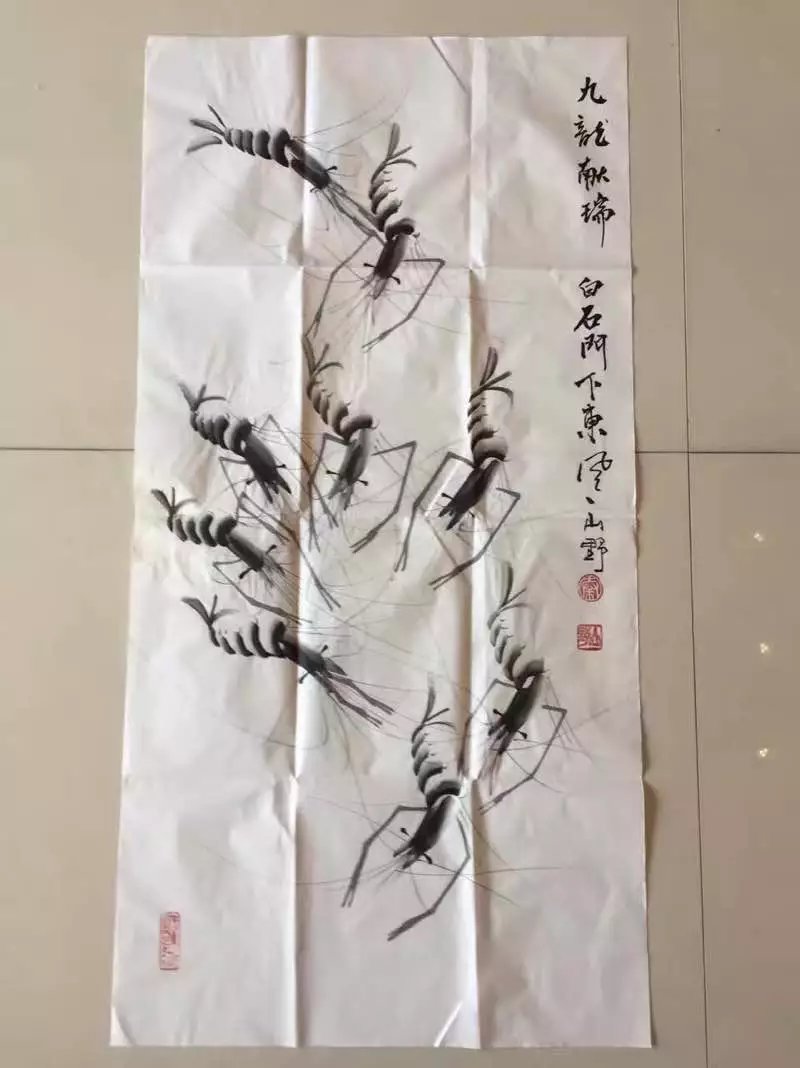 九龍献瑞 白石門下東風山野